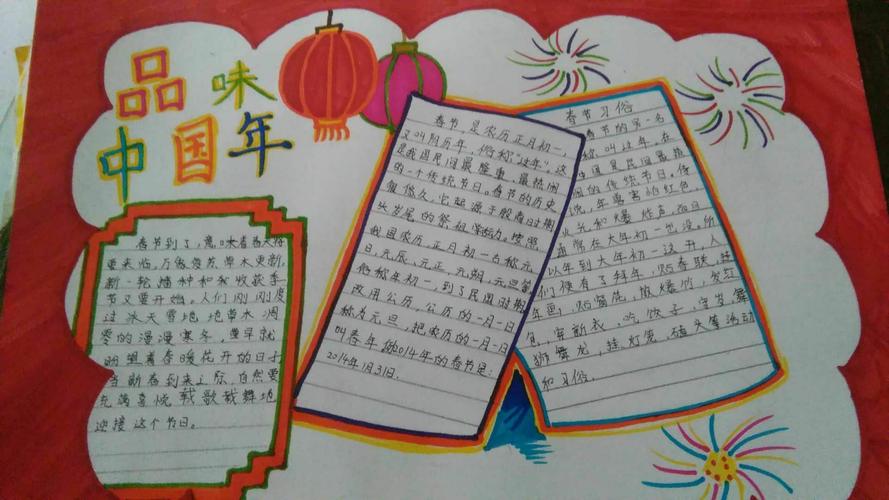 品味
中国年
春节到了,意味着春天将
要来临,万象复苏草木更新,
新一轮播种和和收获季
节又要开始。人们刚刚度
过冰天雪地地草木凋
零的漫漫寒冬,早就
盼望着春暖花开的日子
当新春到来之际,自然要
充满喜悦载歌载舞地
迎接这个节日。
春节,是农历正月初一,
又叫阴历年,俗称"过年",这
是我国民间最隆重、最热闹
的一个传统节日。春节的历史
很悠久,它起源于殷商时期
头岁尾的祭祖活动。按照
我国农历,正月初一古称元
日、元辰、元正、元朔、元旦等
俗称年初一,到了民国时期
改用公历,公历的一月一日
称为元旦,把农历的一月一日
叫春年 2014年的春节是:
2014年1月31日.
春节习俗
春节的另一名
称叫过年,在
中国是民间最热
闹的传统节日。传
说,年害怕红色,
火光和爆炸声,而且
通常在大年初一出没。所
以年到大年初一这开,人
们便有了拜年,贴春联,挂
年画,贴窗花,放爆竹,发红
包,穿新衣、吃饺子,守岁,舞
狮舞龙,挂灯笼,磕头等活动
和习俗。